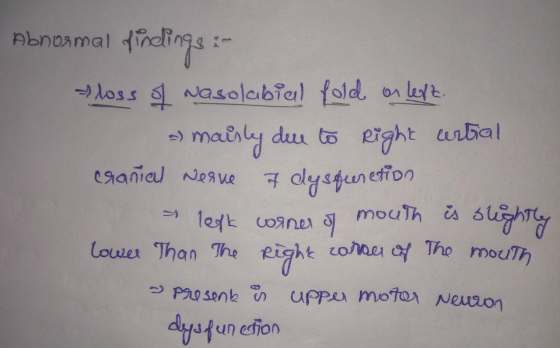 Abnormal findings :-
⇒ loss of Nasolabial fold on left.
⇒ mainly due to Right critial
cranial Nerve 7 dysfunction
⇒ left corner of mouth is slightly
lower Than The Right corner of The mouth
⇒ present in upper motor Neuron
dysfunction